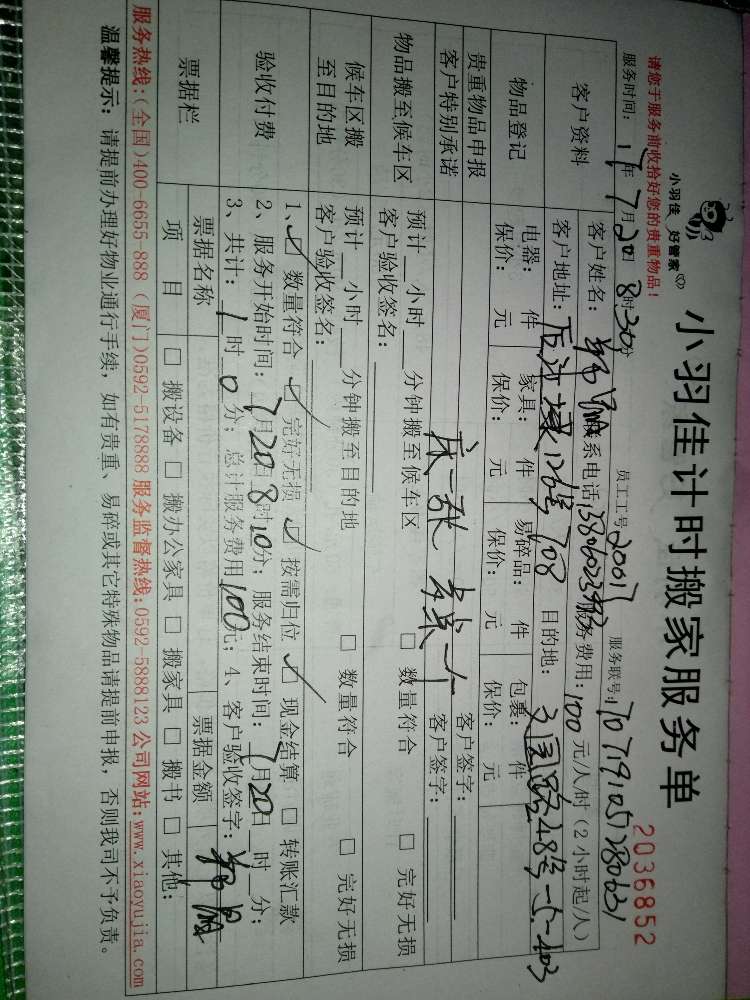 小羽佳 好管家
小羽佳计时搬家服务单
2036852
请您于服务前收拾好您的贵重物品！
服务时间：17年7月20日8时30分 员工工号20017 服务联号：
客户资料
客户姓名： 联系电话 服务费用：100元/人/时（2小时起/人）
客户地址： 708 目的地：
物品登记
电器： 件 家具： 件 易碎品： 件 包裹： 件
保价： 元 保价： 元 保价： 元 保价： 元
贵重物品申报 客户签字：
客户特别承诺 床一张 客户签字：
物品搬至候车区
预计__小时__分钟搬至候车区 □ 数量符合 □ 完好无损
客户验收签名：
候车区搬至目的地
预计__小时__分钟搬至目的地 □ 数量符合 □ 完好无损
客户验收签名：
验收付费
1、☑ 数量符合 ☑ 完好无损 ☑ 按需归位 ☑ 现金结算 □ 转账汇款
2、服务开始时间：7月20日8时10分；服务结束时间：7月20日__时__分；
3、共计：1时0分；总计服务费用100元；4、客户验收签字：
票据栏
票据名称 票据金额
项目 □ 搬设备 □ 搬办公家具 □ 搬家具 □ 搬书 □ 其他：
服务热线：（全国）400-6655-888（厦门）0592-5178888 服务监督热线：0592-5888123 公司网站：www.xiaoyujia.com
温馨提示： 请提前办理好物业通行手续，如有贵重、易碎或其它特殊物品请提前申报，否则我司不予负责。